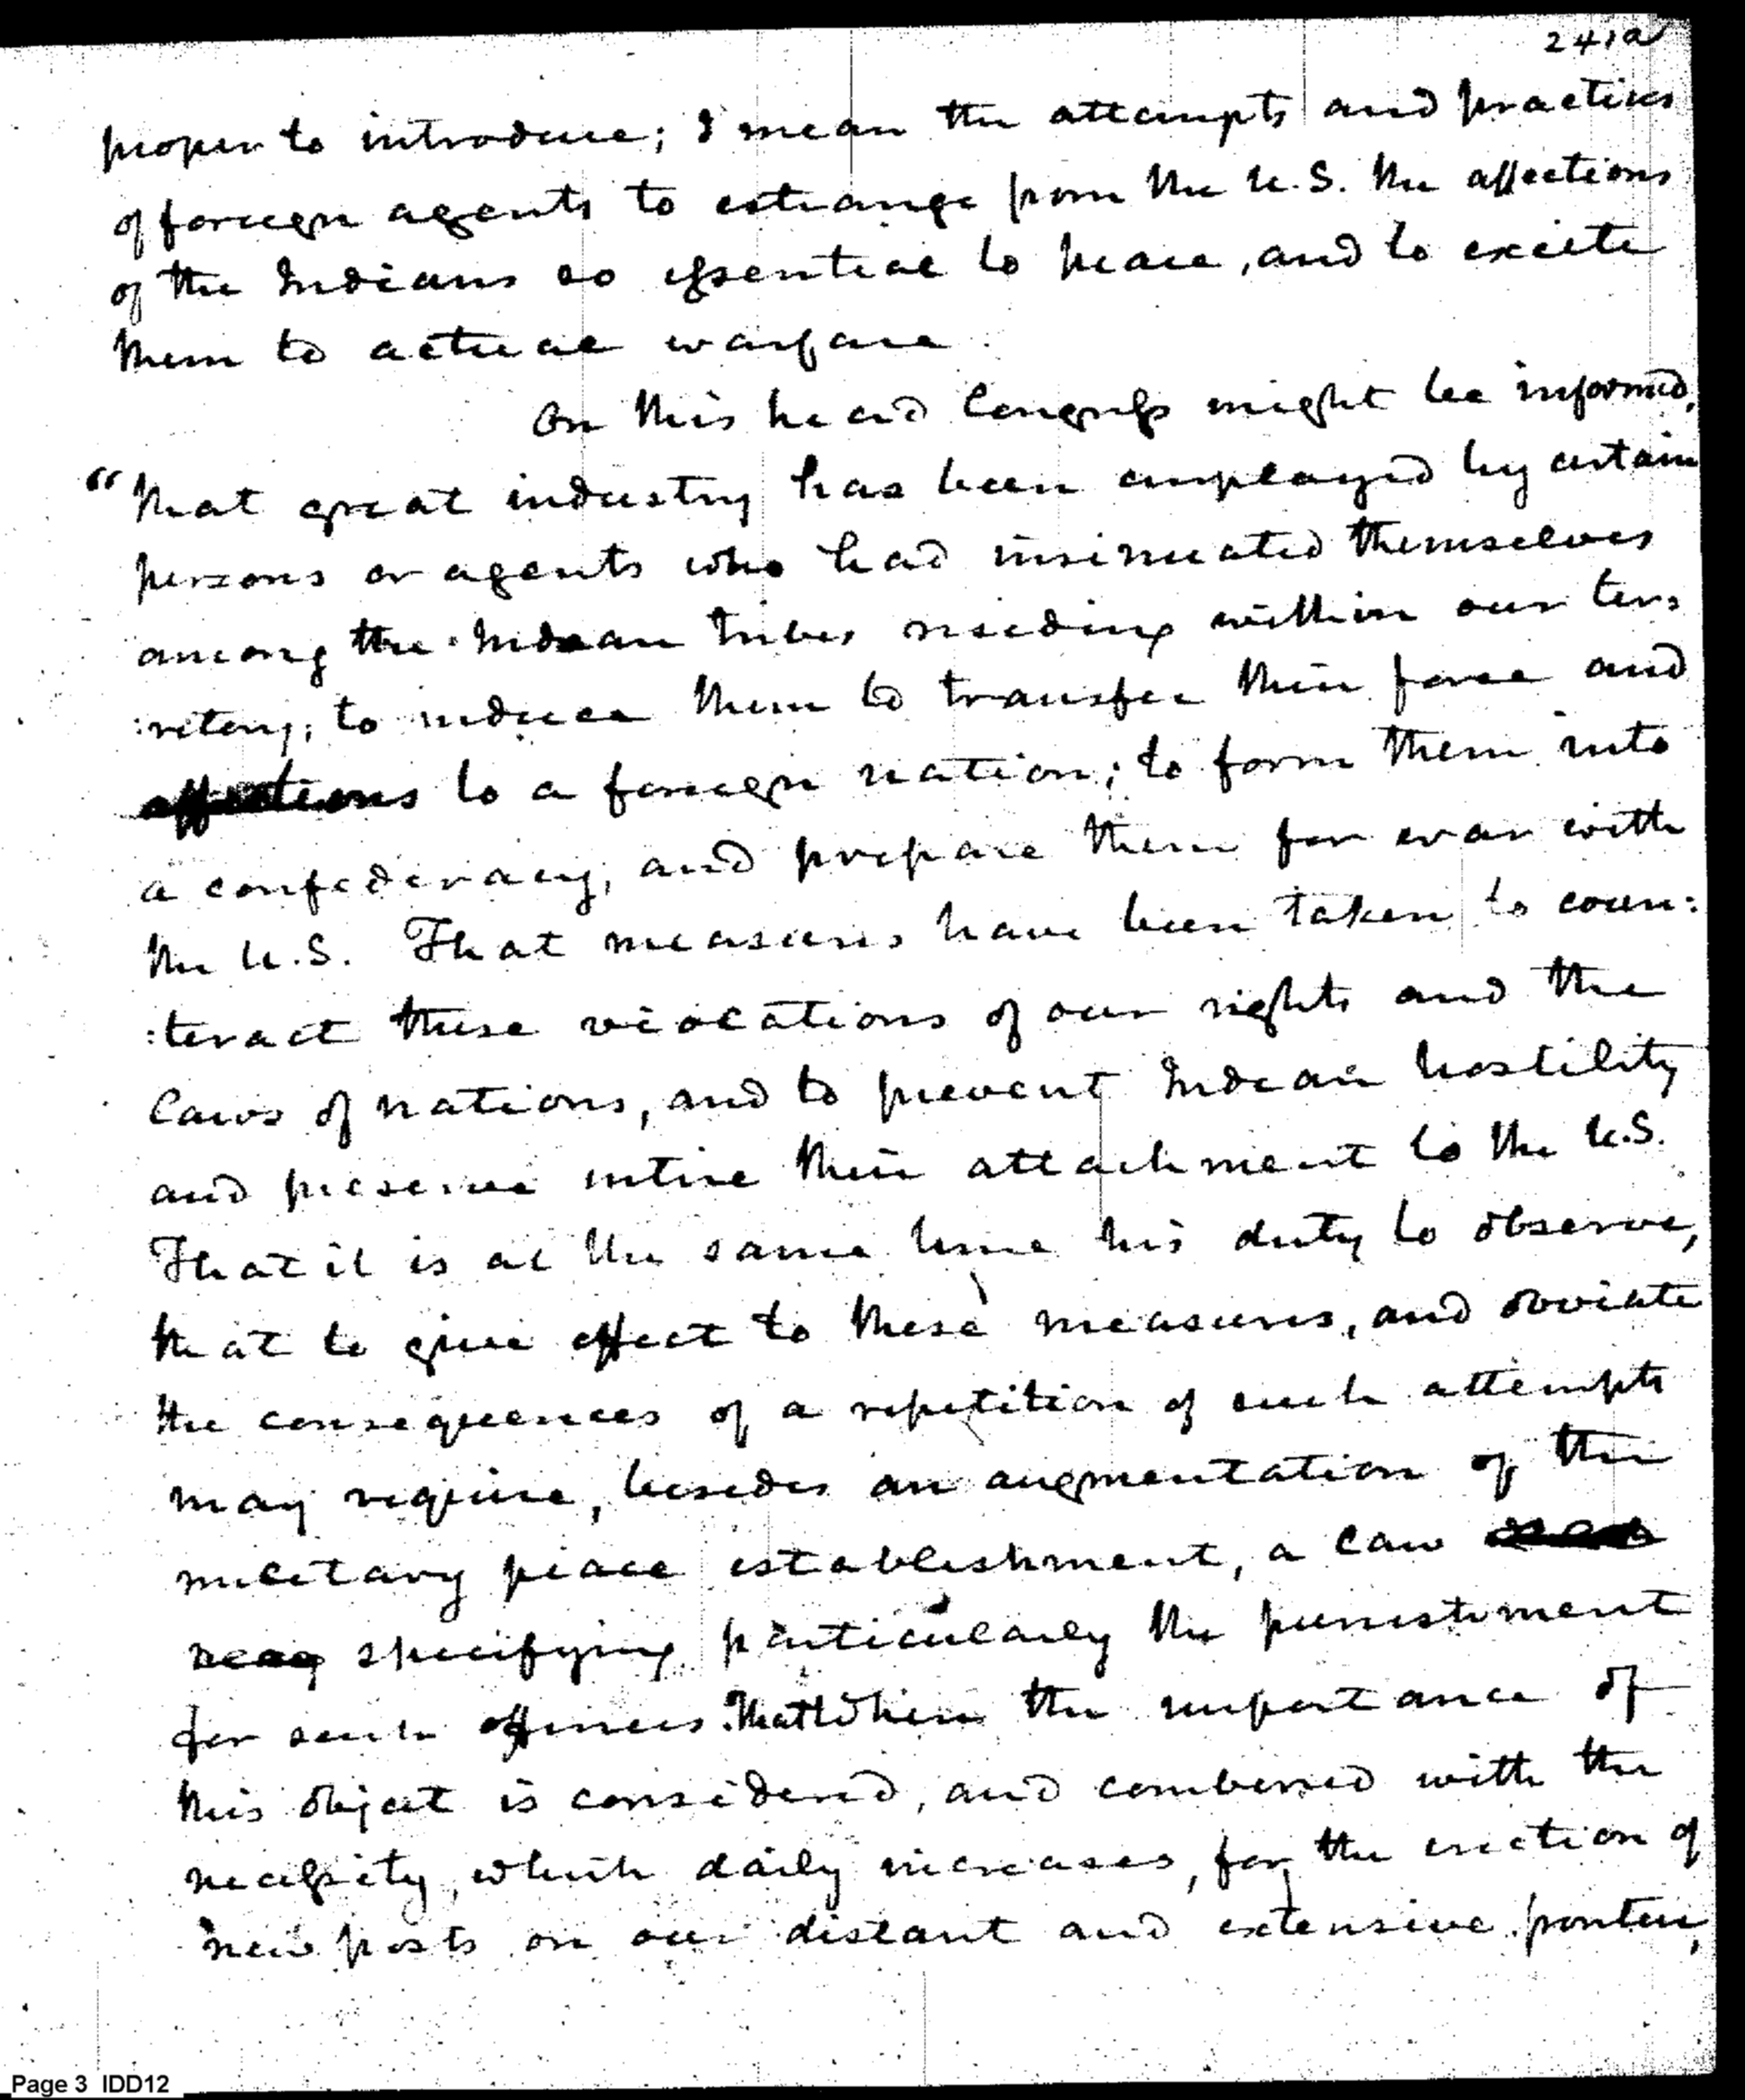 241a
proper to introduce; I mean the attempts and practices
of foreign agents to estrange from the U.S. the affections
of the Indians so essential to peace, and to excite
them to actual warfare.
On this head Congress might be informed,
"That great industry has been employed by certain
persons or agents who had insinuated themselves
among the Indian tribes residing within our ter:
:ritory; to induce them to transfer their force and
affections to a foreign nation; to form them into
a confederacy, and prepare them for war with
the U.S. That measures have been taken to coun:
:teract these violations of our rights and the
laws of nations, and to prevent Indian hostility
and preserve intire their attachment to the U.S.
That it is at the same time his duty to observe,
that to give effect to these measures, and obviate
the consequences of a repetition of such attempts
may require, besides an augmentation of the
military peace establishment, a law
specifying particularly the punishment
for such offences. That when the importance of
this object is considered, and combined with the
necessity, which daily increases, for the erection of
new posts on our distant and extensive frontier,
Page 3 IDD12